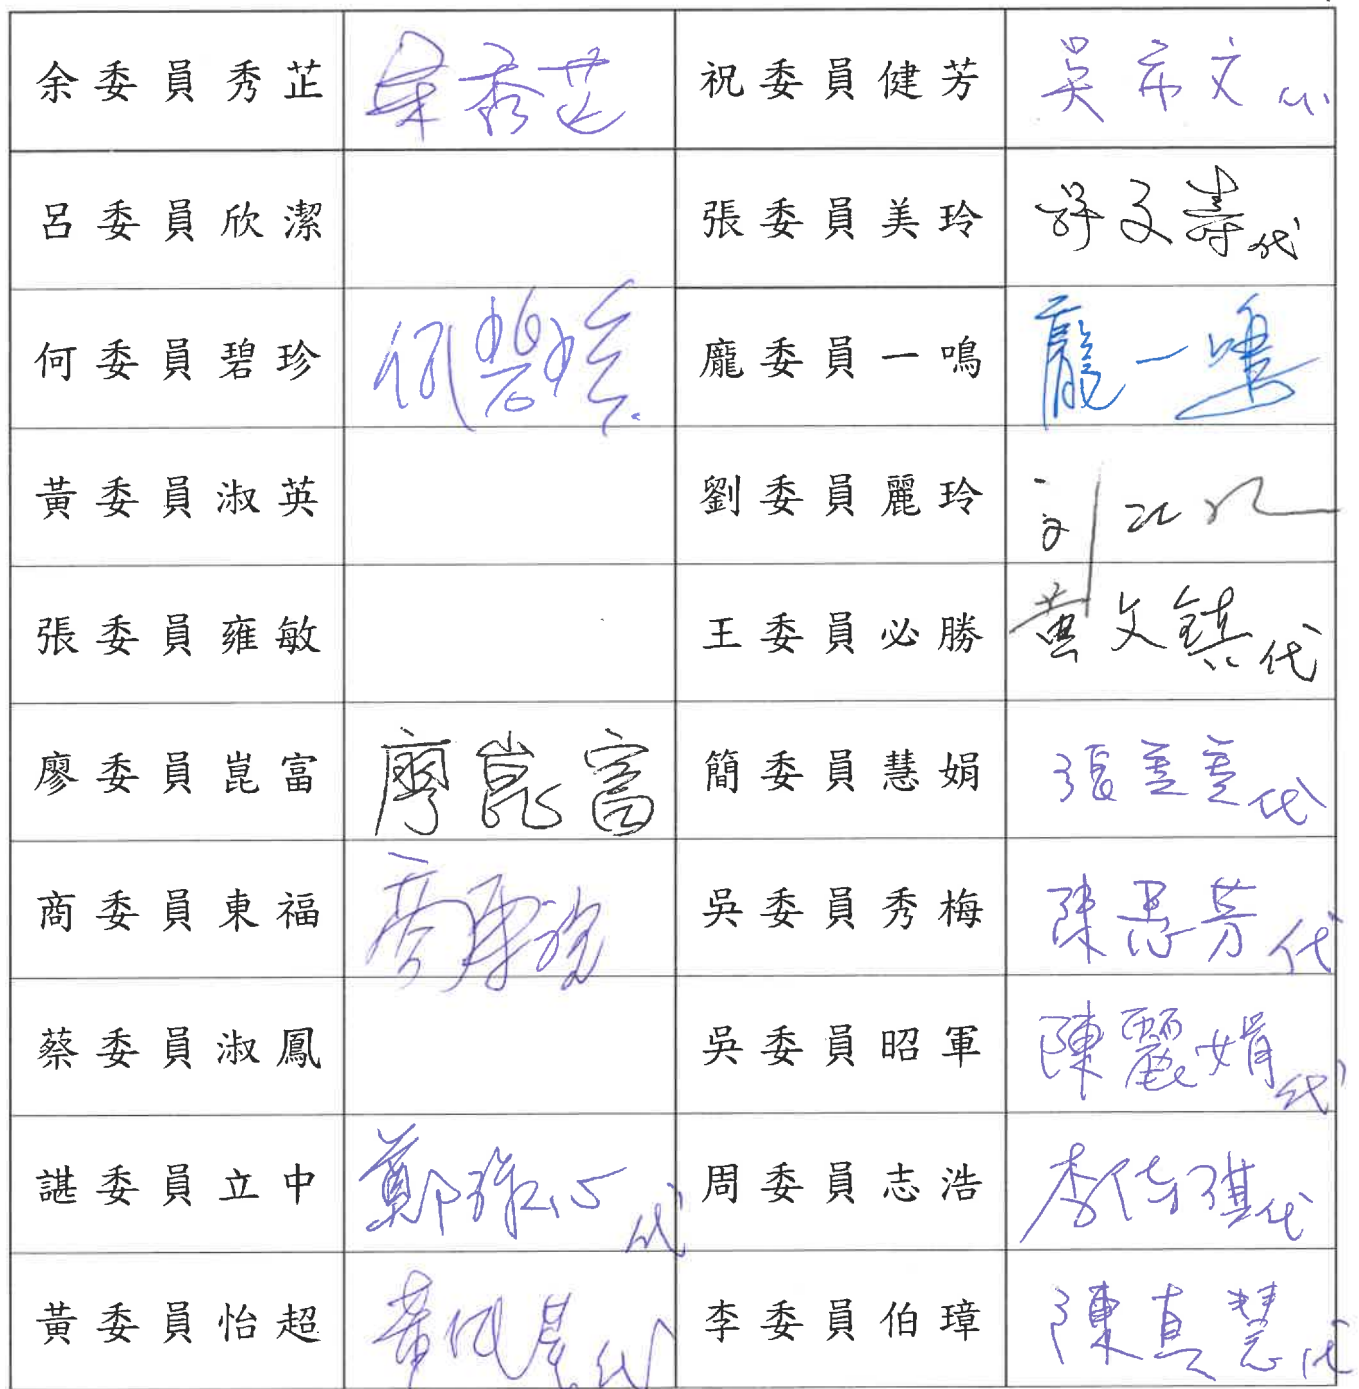 余委員秀芷 余秀芷 祝委員健芳 吳希文代
呂委員欣潔 張委員美玲 許文壽代
何委員碧珍 何碧珍 龐委員一鳴 龐一鳴
黃委員淑英 劉委員麗玲 刘
張委員雍敏 王委員必勝 黃文鎮代
廖委員崑富 廖崑富 簡委員慧娟 張代
商委員東福 商東福 吳委員秀梅 陳惠芳代
蔡委員淑鳳 吳委員昭軍 陳麗娟代
諶委員立中 鄭代 周委員志浩 李佳琪代
黃委員怡超 黃代 李委員伯璋 陳真慧代